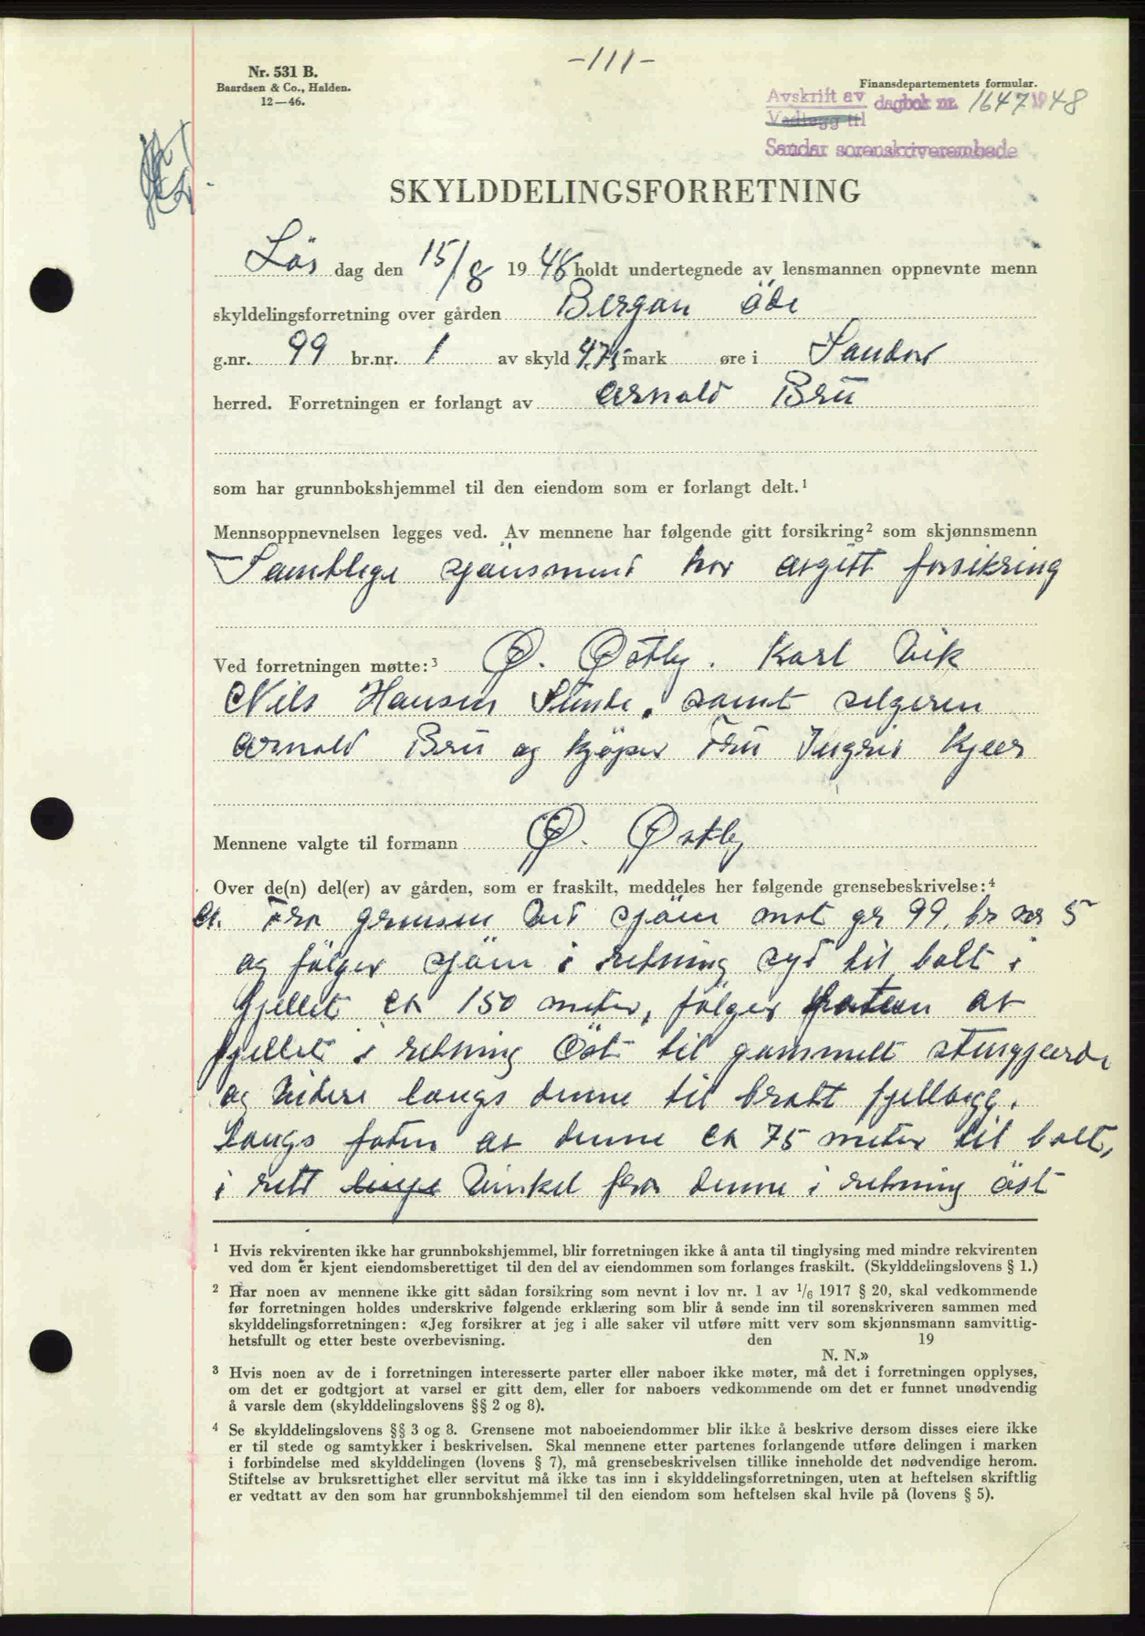 -111-
Nr. 531 B.
Baardsen & Co., Halden.
12—46.
Finansdepartementets formular.
Avskrift av dagbok nr. 1647 1948
Vedlegg til
Sandar sorenskriverembede
SKYLDDELINGSFORRETNING
Lör dag den 15/8 1948 holdt undertegnede av lensmannen oppnevnte menn
skyldelingsforretning over gården Bergan öde
g.nr. 99 br.nr. 1 av skyld 4,75 mark øre i Sandar
herred. Forretningen er forlangt av Arnold Bru
som har grunnbokshjemmel til den eiendom som er forlangt delt.¹
Mennsoppnevnelsen legges ved. Av mennene har følgende gitt forsikring² som skjønnsmenn
Samtlige har avgitt forsikring
Ved forretningen møtte:³ Ø. Østby. Karl Vik
Nils Hansen Sunde. samt selgeren
Arnold Bru og kjöper Fru Ingrid Kjær
Mennene valgte til formann Ø. Østby
Over de(n) del(er) av gården, som er fraskilt, meddeles her følgende grensebeskrivelse:⁴
Fra grensen ved sjöen mot gr 99. br nr 5
og fölger sjöen i retning syd til bolt i
fjellet ca 150 meter, fölger foten av
fjellet i retning Öst til gammelt stengjerde
og videre langs denne til bratt fjellvegg.
langs foten av denne ca 75 meter til bolt,
i rett vinkel fra denne i retning öst
¹ Hvis rekvirenten ikke har grunnbokshjemmel, blir forretningen ikke å anta til tinglysing med mindre rekvirenten
ved dom er kjent eiendomsberettiget til den del av eiendommen som forlanges fraskilt. (Skylddelingslovens § 1.)
² Har noen av mennene ikke gitt sådan forsikring som nevnt i lov nr. 1 av 1/6 1917 § 20, skal vedkommende
før forretningen holdes underskrive følgende erklæring som blir å sende inn til sorenskriveren sammen med
skylddelingsforretningen: «Jeg forsikrer at jeg i alle saker vil utføre mitt verv som skjønnsmann samvittig-
hetsfullt og etter beste overbevisning. den 19
N. N.»
³ Hvis noen av de i forretningen interesserte parter eller naboer ikke møter, må det i forretningen opplyses,
om det er godtgjort at varsel er gitt dem, eller for naboers vedkommende om det er funnet unødvendig
å varsle dem (skylddelingslovens §§ 2 og 8).
⁴ Se skylddelingslovens §§ 3 og 8. Grensene mot naboeiendommer blir ikke å beskrive dersom disses eiere ikke
er til stede og samtykker i beskrivelsen. Skal mennene etter partenes forlangende utføre delingen i marken
i forbindelse med skylddelingen (lovens § 7), må grensebeskrivelsen tillike inneholde det nødvendige herom.
Stiftelse av bruksrettighet eller servitut må ikke tas inn i skylddelingsforretningen, uten at heftelsen skriftlig
er vedtatt av den som har grunnbokshjemmel til den eiendom som heftelsen skal hvile på (lovens § 5).